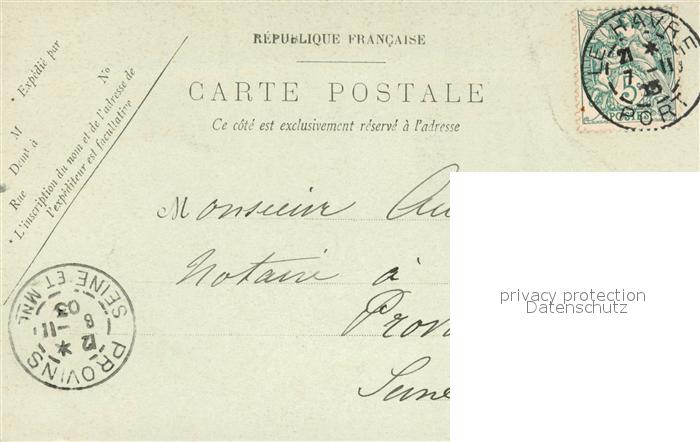 RÉPUBLIQUE FRANÇAISE
CARTE POSTALE
Ce côté est exclusivement réservé à l'adresse
• Expédié par
M
No
Demt à
Rue
• L'inscription du nom et de l'adresse de
l'expéditeur est facultative
LE HAVRE
PORT
POSTES
Monsieur
Notaire à
privacy protection
Datenschutz
PROVINS
SEINE ET MNE
12 *
8 -11
03